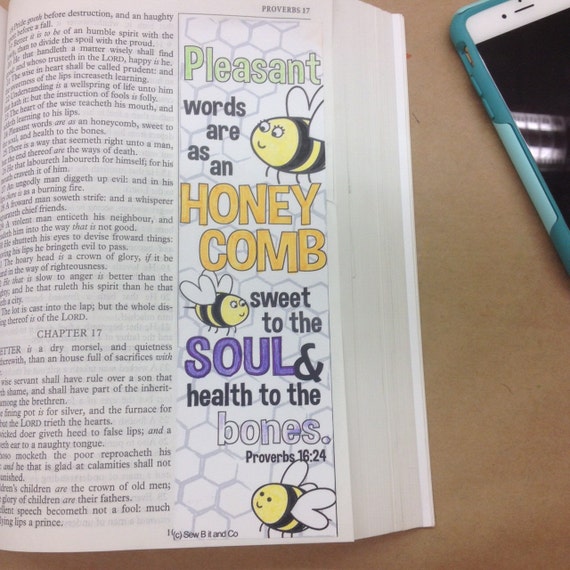 PROVERBS 17
Pride goeth before destruction, and an haughty
before a fall.
it is to be of an humble spirit with the
than to divide the spoil with the proud.
He that handleth a matter wisely shall find
and whoso trusteth in the LORD, happy is he.
The wise in heart shall be called prudent: and
sweetness of the lips increaseth learning.
Understanding is a wellspring of life unto him
hath it: but the instruction of fools is folly.
The heart of the wise teacheth his mouth, and
learning to his lips.
Pleasant words are as an honeycomb, sweet to
soul, and health to the bones.
There is a way that seemeth right unto a man,
the end thereof are the ways of death.
He that laboureth laboureth for himself; for his
craveth it of him.
An ungodly man diggeth up evil: and in his
there is as a burning fire.
A froward man soweth strife: and a whisperer
separateth chief friends.
A violent man enticeth his neighbour, and
leadeth him into the way that is not good.
He shutteth his eyes to devise froward things:
moving his lips he bringeth evil to pass.
The hoary head is a crown of glory, if it be
found in the way of righteousness.
He that is slow to anger is better than the
mighty; and he that ruleth his spirit than he that
a city.
The lot is cast into the lap; but the whole dis-
ing thereof is of the LORD.
CHAPTER 17
BETTER is a dry morsel, and quietness
therewith, than an house full of sacrifices with
wise servant shall have rule over a son that
shame, and shall have part of the inherit-
among the brethren.
fining pot is for silver, and the furnace for
but the LORD trieth the hearts.
wicked doer giveth heed to false lips; and a
ear to a naughty tongue.
Whoso mocketh the poor reproacheth his
and he that is glad at calamities shall not
unpunished.
children's children are the crown of old men;
the glory of children are their fathers.
Excellent speech becometh not a fool: much
lying lips a prince.
Pleasant
words
are
as
an
HONEY
COMB
sweet
to the
SOUL &
health to the
bones.
Proverbs 16:24
(c) Sew B it and Co